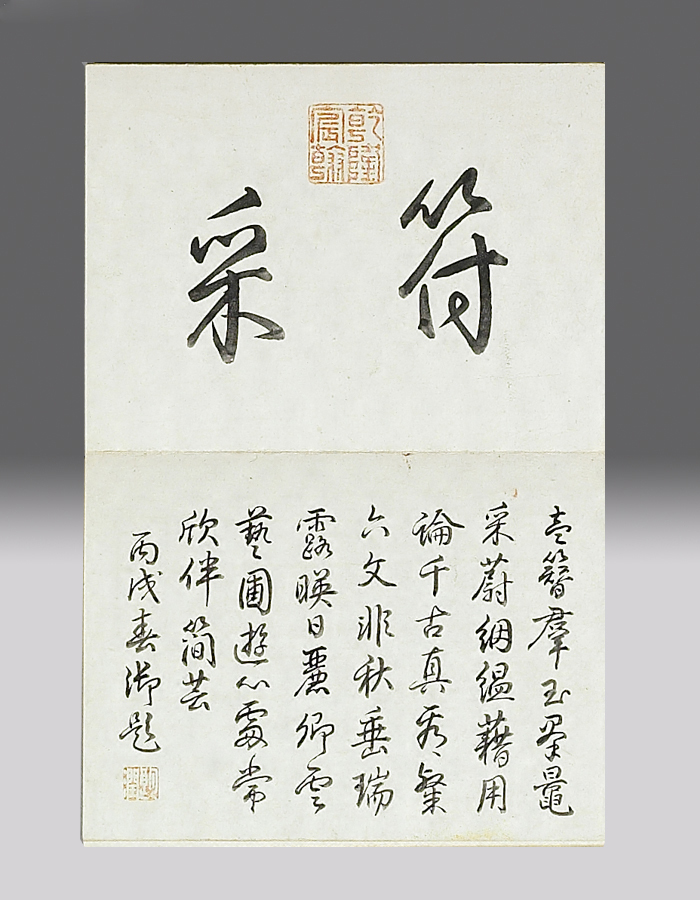 乾隆宸翰
符采
盍簪羣玉界鼂
采蔚絪縕藉用
論千古真看粲
六文非秋垂瑞
露暎日麗卿雲
藝圃遊心處常
欣伴簡芸
丙戌春御題